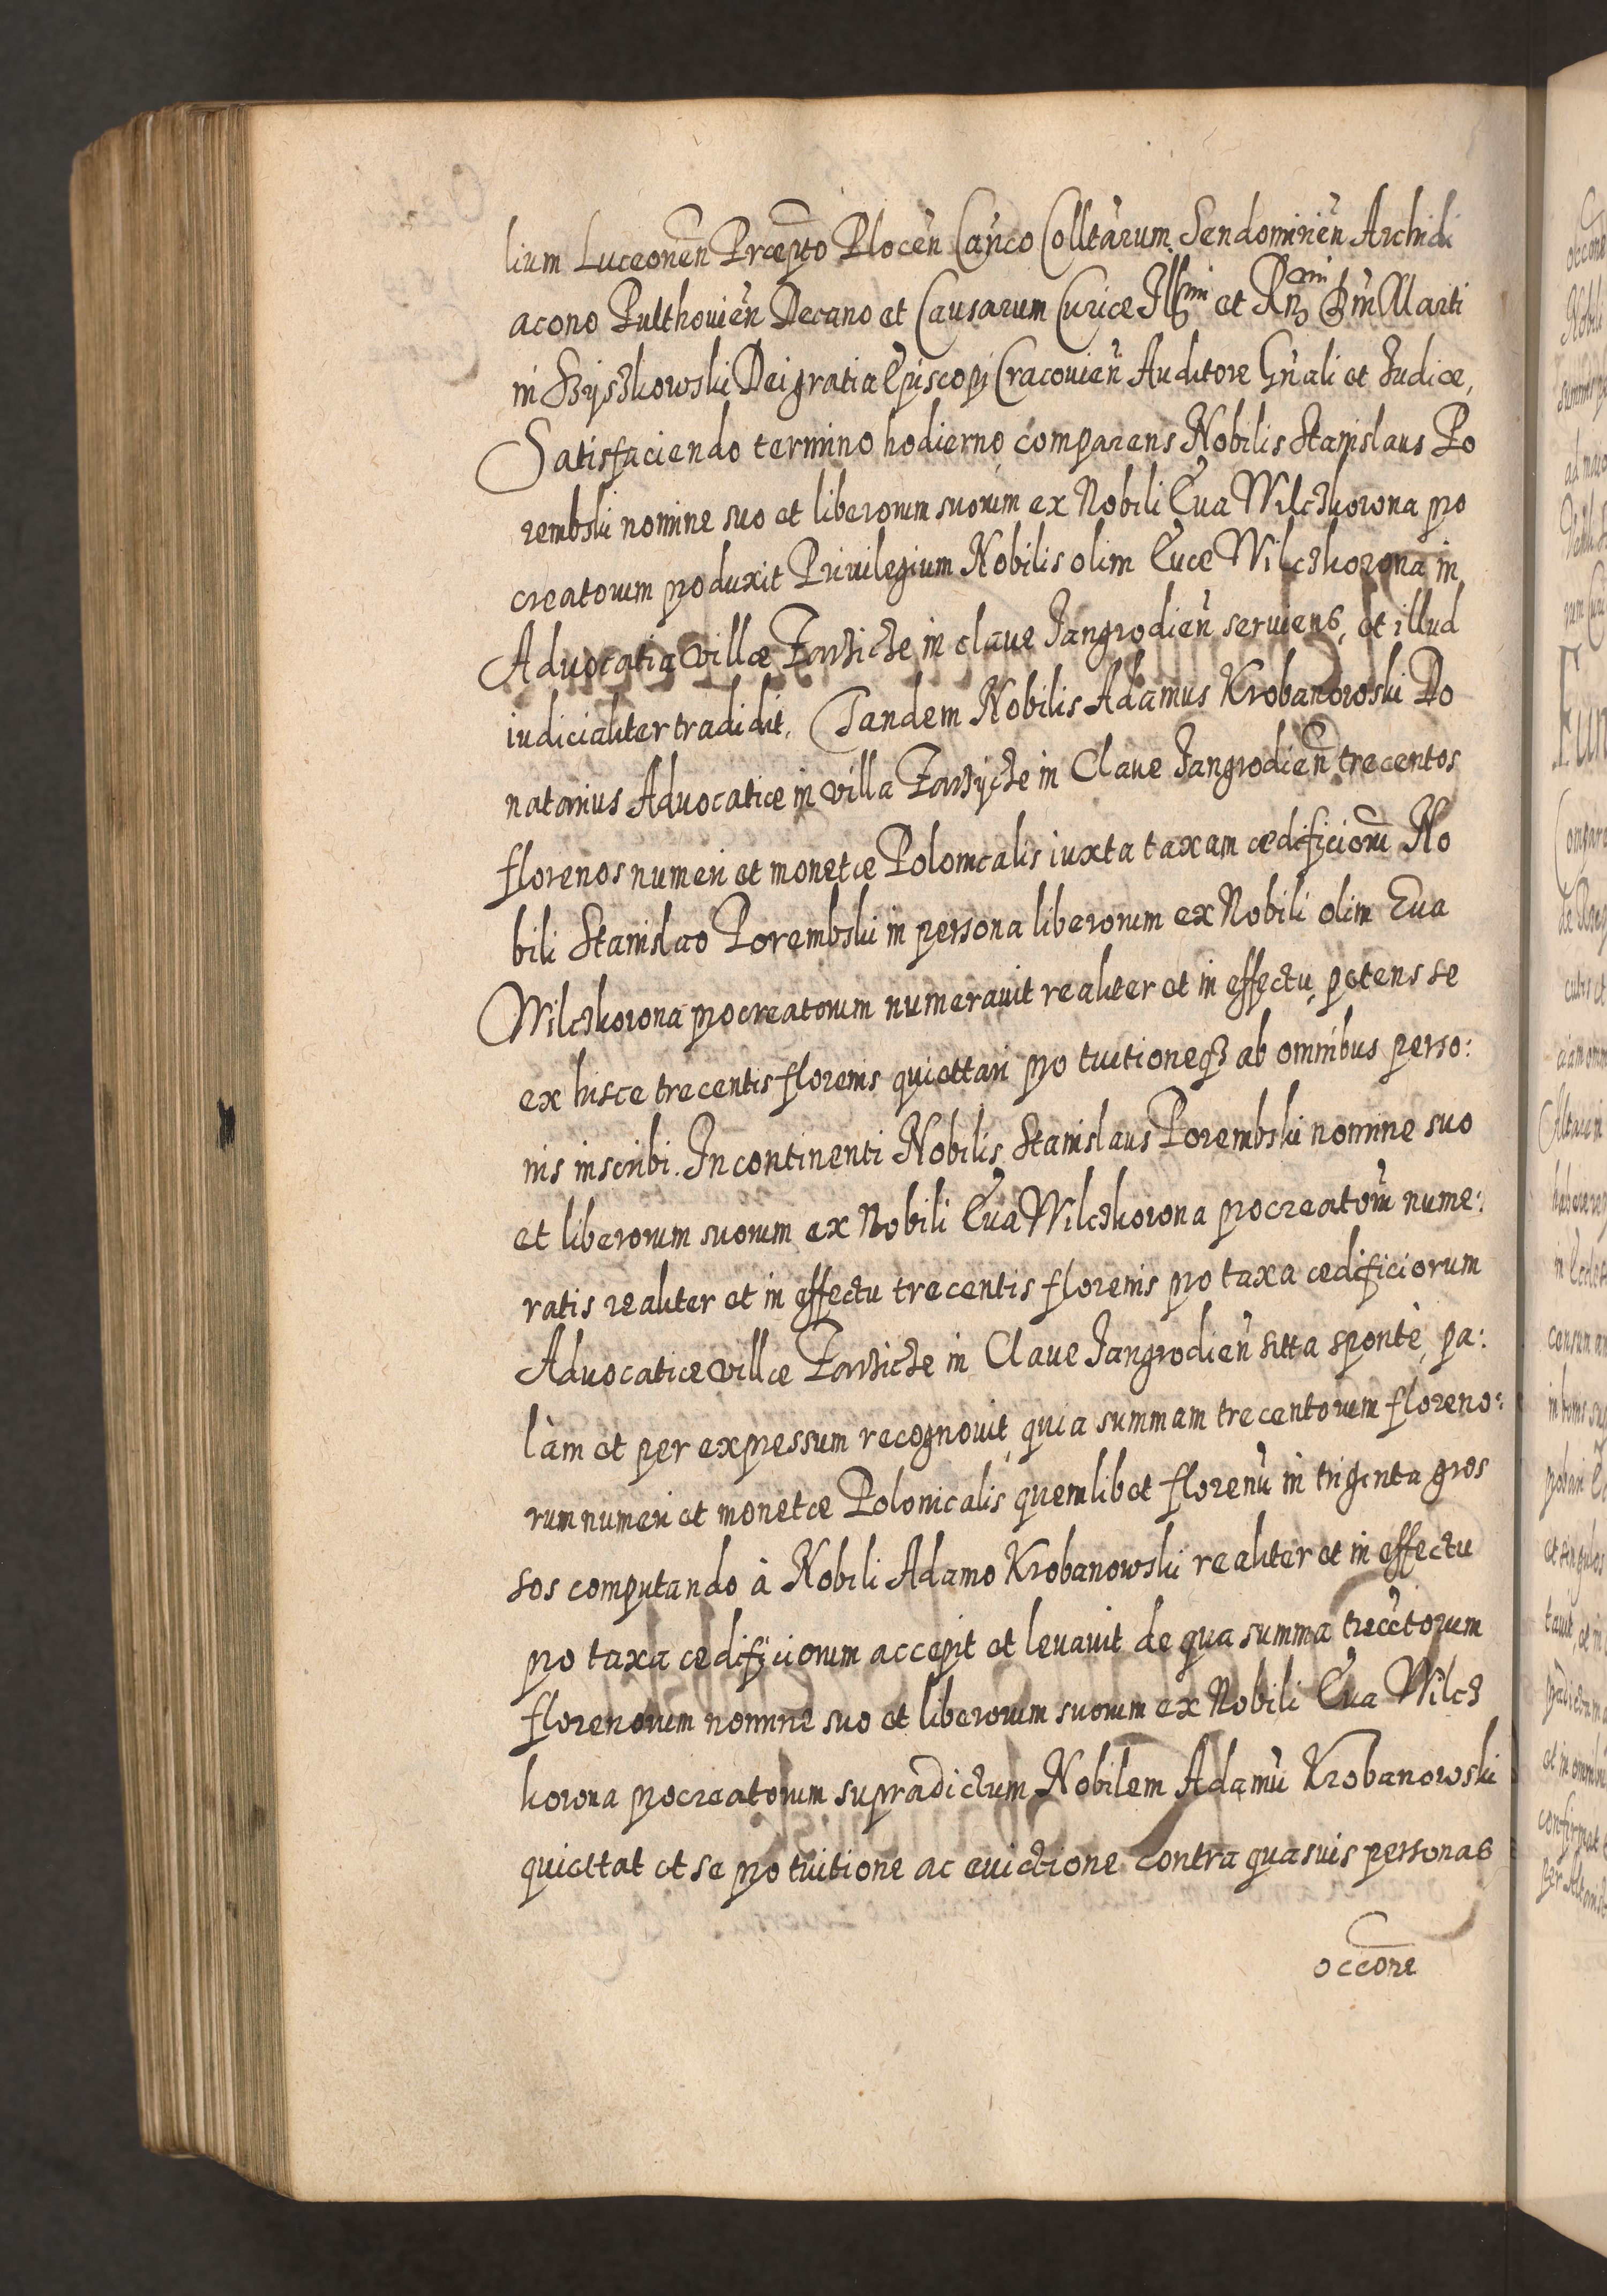 lium Luceoneñ Præpto Ploceñ Cañco Colltarum Sendomirieñ Archidi
acono Pulthouieñ Decano et Causarum Curiæ Illmi et Rñ Dñi Marti
ni Szyszkowski Dei gratia Episcopi Cracouieñ Auditore Gñali et Iudice,
Satisfaciendo termino hodierno comparens Nobilis Stanislaus Po
rembski nomine suo et liberorum suorum ex Nobili Eua Wilczkorona pro
creatorum produxit Priuilegium Nobilis olim Euæ Wilczkorona in
Aduocatia villæ Zarzicze in claue Jangrodieñ seruiens, et illud
iudicialiter tradidit. Tandem Nobilis Adamus Krobanowski Do
natarius Aduocatiæ in villa Zarzycze in Claue Jangrodieñ trecentos
florenos numeri et monetæ Polonicalis iuxta taxam ædificiorũ No
bili Stanislao Porembski in persona liberorum ex Nobili olim Eua
Wilczkorona procreatorum numerauit realiter et in effectu, petens se
ex hisce trecentis florenis quiettari pro tuitioneqz ab omnibus perso:
nis inscribi. In continenti Nobilis Stanislaus Porembski nomine suo
et liberorum suorum ex Nobili Eua Wilczkorona procreatorũ nume:
ratis realiter et in effectu trecentis florenis pro taxa ædificiorum
Aduocatiæ villæ Zarzicze in Claue Jangrodieñ sitta spontè, pa:
làm et per expressum recognouit, quia summam trecentorum floreno:
rum numeri et monetæ Polonicalis quemlibet florenũ in triginta gros
sos computando à Nobili Adamo Krobanowski realiter et in effectu
pro taxa ædificiorum accepit et leuauit de qua summa trecẽtorum
florenorum nomine suo et liberorum suorum ex Nobili Eua Wilcz
korona procreatorum supradictum Nobilem Adamũ Krobanowski
quiettat et se pro tuitione ac euictione contra quasuis personas
occõne